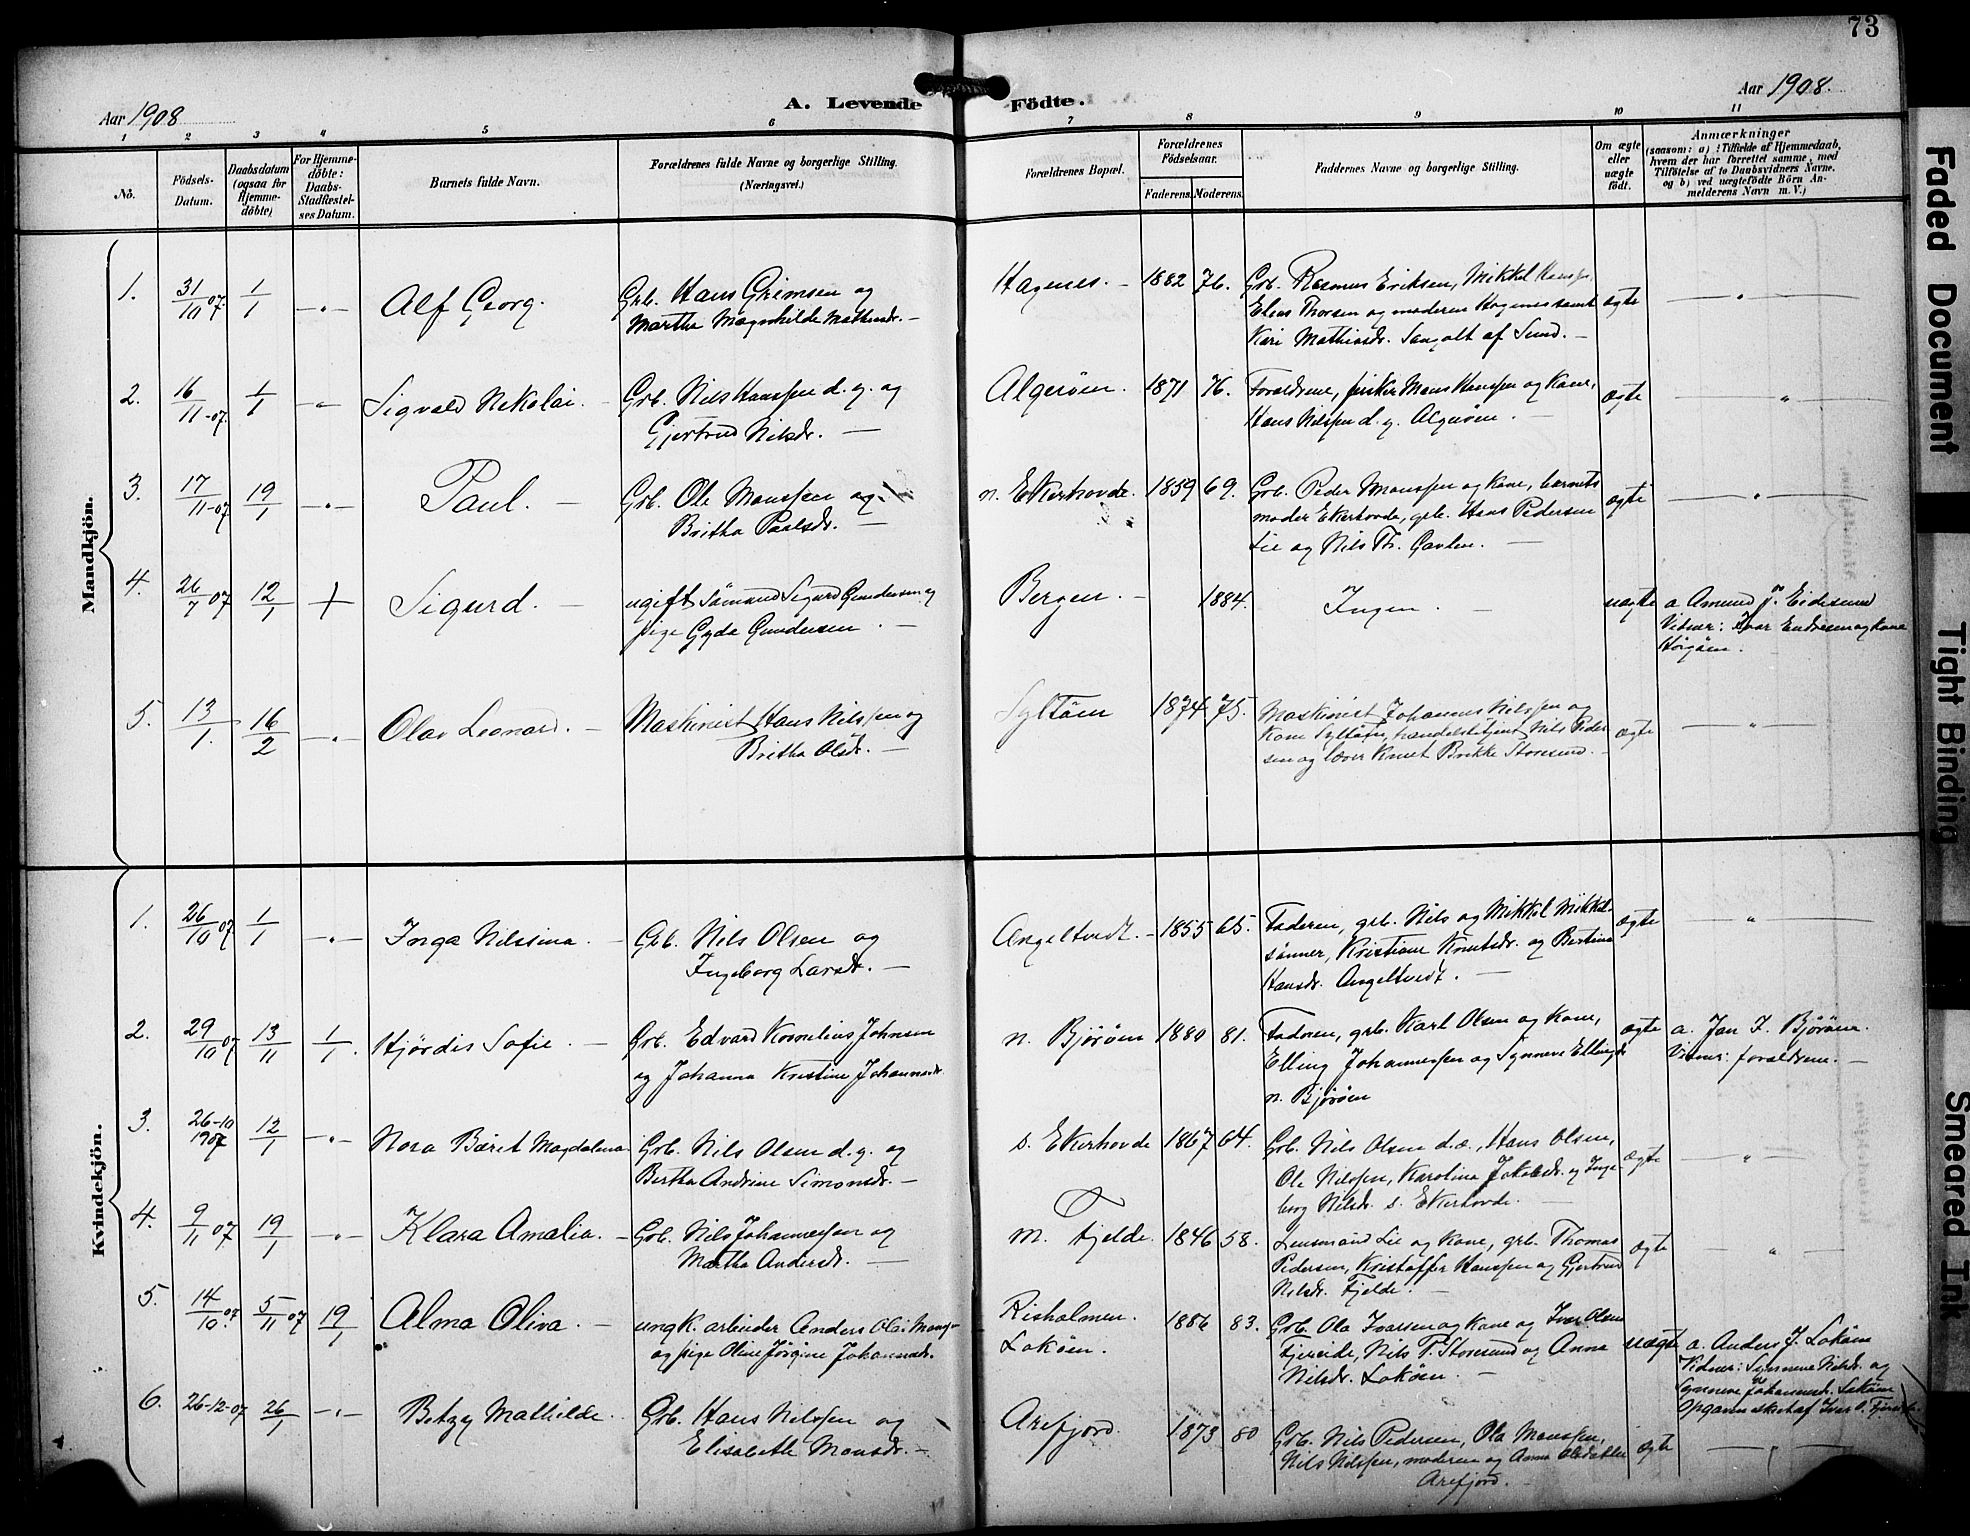 73
Aar 1908
A. Levende Födte.
Aar 1908.
1 2 3 4 5 6 7 8 9 10 11
No.
Födsels-
Datum.
Daabsdatum
(ogsaa for
Hjemme-
døbte)
For Hjemme-
døbte:
Daabs-
Stadfæstel-
ses Datum.
Barnets fulde Navn.
Forældrenes fulde Navne og borgerlige Stilling.
(Næringsvei.)
Forældrenes Bopæl.
Forældrenes
Födselsaar.
Faderens. Moderens.
Faddernes Navne og borgerlige Stilling.
Om ægte
eller
uægte
født.
Anmærkninger
(saasom: a) i Tilfælde af Hjemmedaab,
hvem der har forrettet samme, med
Tilføielse af to Daabsvidners Navne,
og b) ved uægtefödte Börn An-
melderens Navn m. V.)
Mandkjön.
1. 31/10 07. 1/1 —"— Alf Georg.
Grb. Hans Grimsen og
Martha Magnhilde Mathisdr. —
Hagenes. — 1882 76.
Grb. Rasmus Eriksen, Mikkel Hanss.
Elias Thorsen og moderen Hagenes samt
Kari Mathiasdr. Sangolt af Sund. —
ægte — " —
2. 16/11-07. 1/1 —"— Sigvald Nikolai. —
Grb. Nils Hanssen d. y. og
Gjertrud Nilsdr. —
Algerøen. 1871 76.
Forældrene, fisker Mons Hanssen og Kone,
Hans Nilssen d. y. Algerøen. —
ægte — " —
3. 17/11-07 19/1 —"— Paul. —
Grb. Ole Monssen og
Britha Paulsdr. —
n. Ekerhovde. 1859 69.
Grb. Peder Monssen og kone, barnets
moder Ekerhovde, grb. Hans Pedersen
Lie og Nils Th. Gavlen. —
ægte — " —
4. 26/7 07 12/1 + Sigurd. —
ugift Sömand Sigurd Gundersen og
pige Gyda Gundersen. —
Bergen. — 1884.
Ingen. —
uægte a. Amund J. Eidesund
Vidner: Ivar Endresen og kone
5. 13/1. 16/2 —"— Olav Leonard. —
Maskinist Hans Nilssen og
Britha Olsdr. —
Syltöen 1874 75.
Maskinist Johannes Nilssen og
Kone Syltøen, handelsbetjent Nils Peder
sen og lærer Knut Brekke Storesund. —
ægte — " —
Kvindekjön.
1. 26/10 07 1/1 —"— Inga Nilssina. —
Grb. Nils Olsen og
Ingeborg Larsdr. —
Angeltvedt. — 1855 65.
Faderen, grb. Nils og Mikkel Mikkel-
sønner, Kristiane Knutsdr. og Bertina
Hansdr. Angeltvedt. —
ægte — " —
2. 29/10 07 13/11 1/1. Hjördis Sofie. —
Grb. Edvard Kornelius Johnsen
og Johanna Kristine Johannesdr.
n. Bjørøen 1880 81.
Faderen, grb. Karl Olsen og Kone,
Elling Johannessen og Synneve Ellingsdr
n. Bjørøen
ægte a. Jan J. Bjørøen.
Vidner: forældrene. —
3. 26-10
1907 12/1 —"— Nora Bäret Magdalena
Grb. Nils Olsen d. y. og
Bertha Andrine Simonsdr. —
s. Ekerhovde 1867 64.
Grb. Nils Olsen d.æ., Hans Olsen,
Ole Nilssen, Karolina Jakobsdr. og Inge-
borg Nilsdr. s. Ekerhovde. —
ægte — " —
4. 9/11 07 19/1 —"— Klara Amalia. —
Grb. Nils Johannessen og
Martha Andersdr. —
m. Fjelde. 1846 58.
Lensmand Lie og kone, grb. Thomas
Pedersen, Kristoffer Hanssen og Gjertrud
Nilsdr. Fjelde. —
ægte " —
5. 14/10 07 5/11 07 19/1 Alma Oliva. —
ungk. arbeider Anders Olai Mons-
og pige Oline Jørgine Johannesdr.
Risholmen.
Lokøen. 1886 83.
Grb. Ole Ivarsen og kone og Ivar Olsen
Fjereide, Nils P. Storesund og Anna
Nilsdr. Lokøen. —
uægte a. Anders J. Lokøen
Vidner: Synneve Nilsdr. og
Synneve Johannesdr. Lokøen
6. 26-12-07 26/1 —"— Betzy Mathilde.
Grb. Hans Nilssen og
Elisabeth Monsdr. —
Arefjord. 1873 80
Grb. Nils Pedersen, Ole Monssen,
Nils Nilssen, moderen og Anna
Arefjord. —
ægte — " —
Faded Document
Tight Binding
Smeared Ink